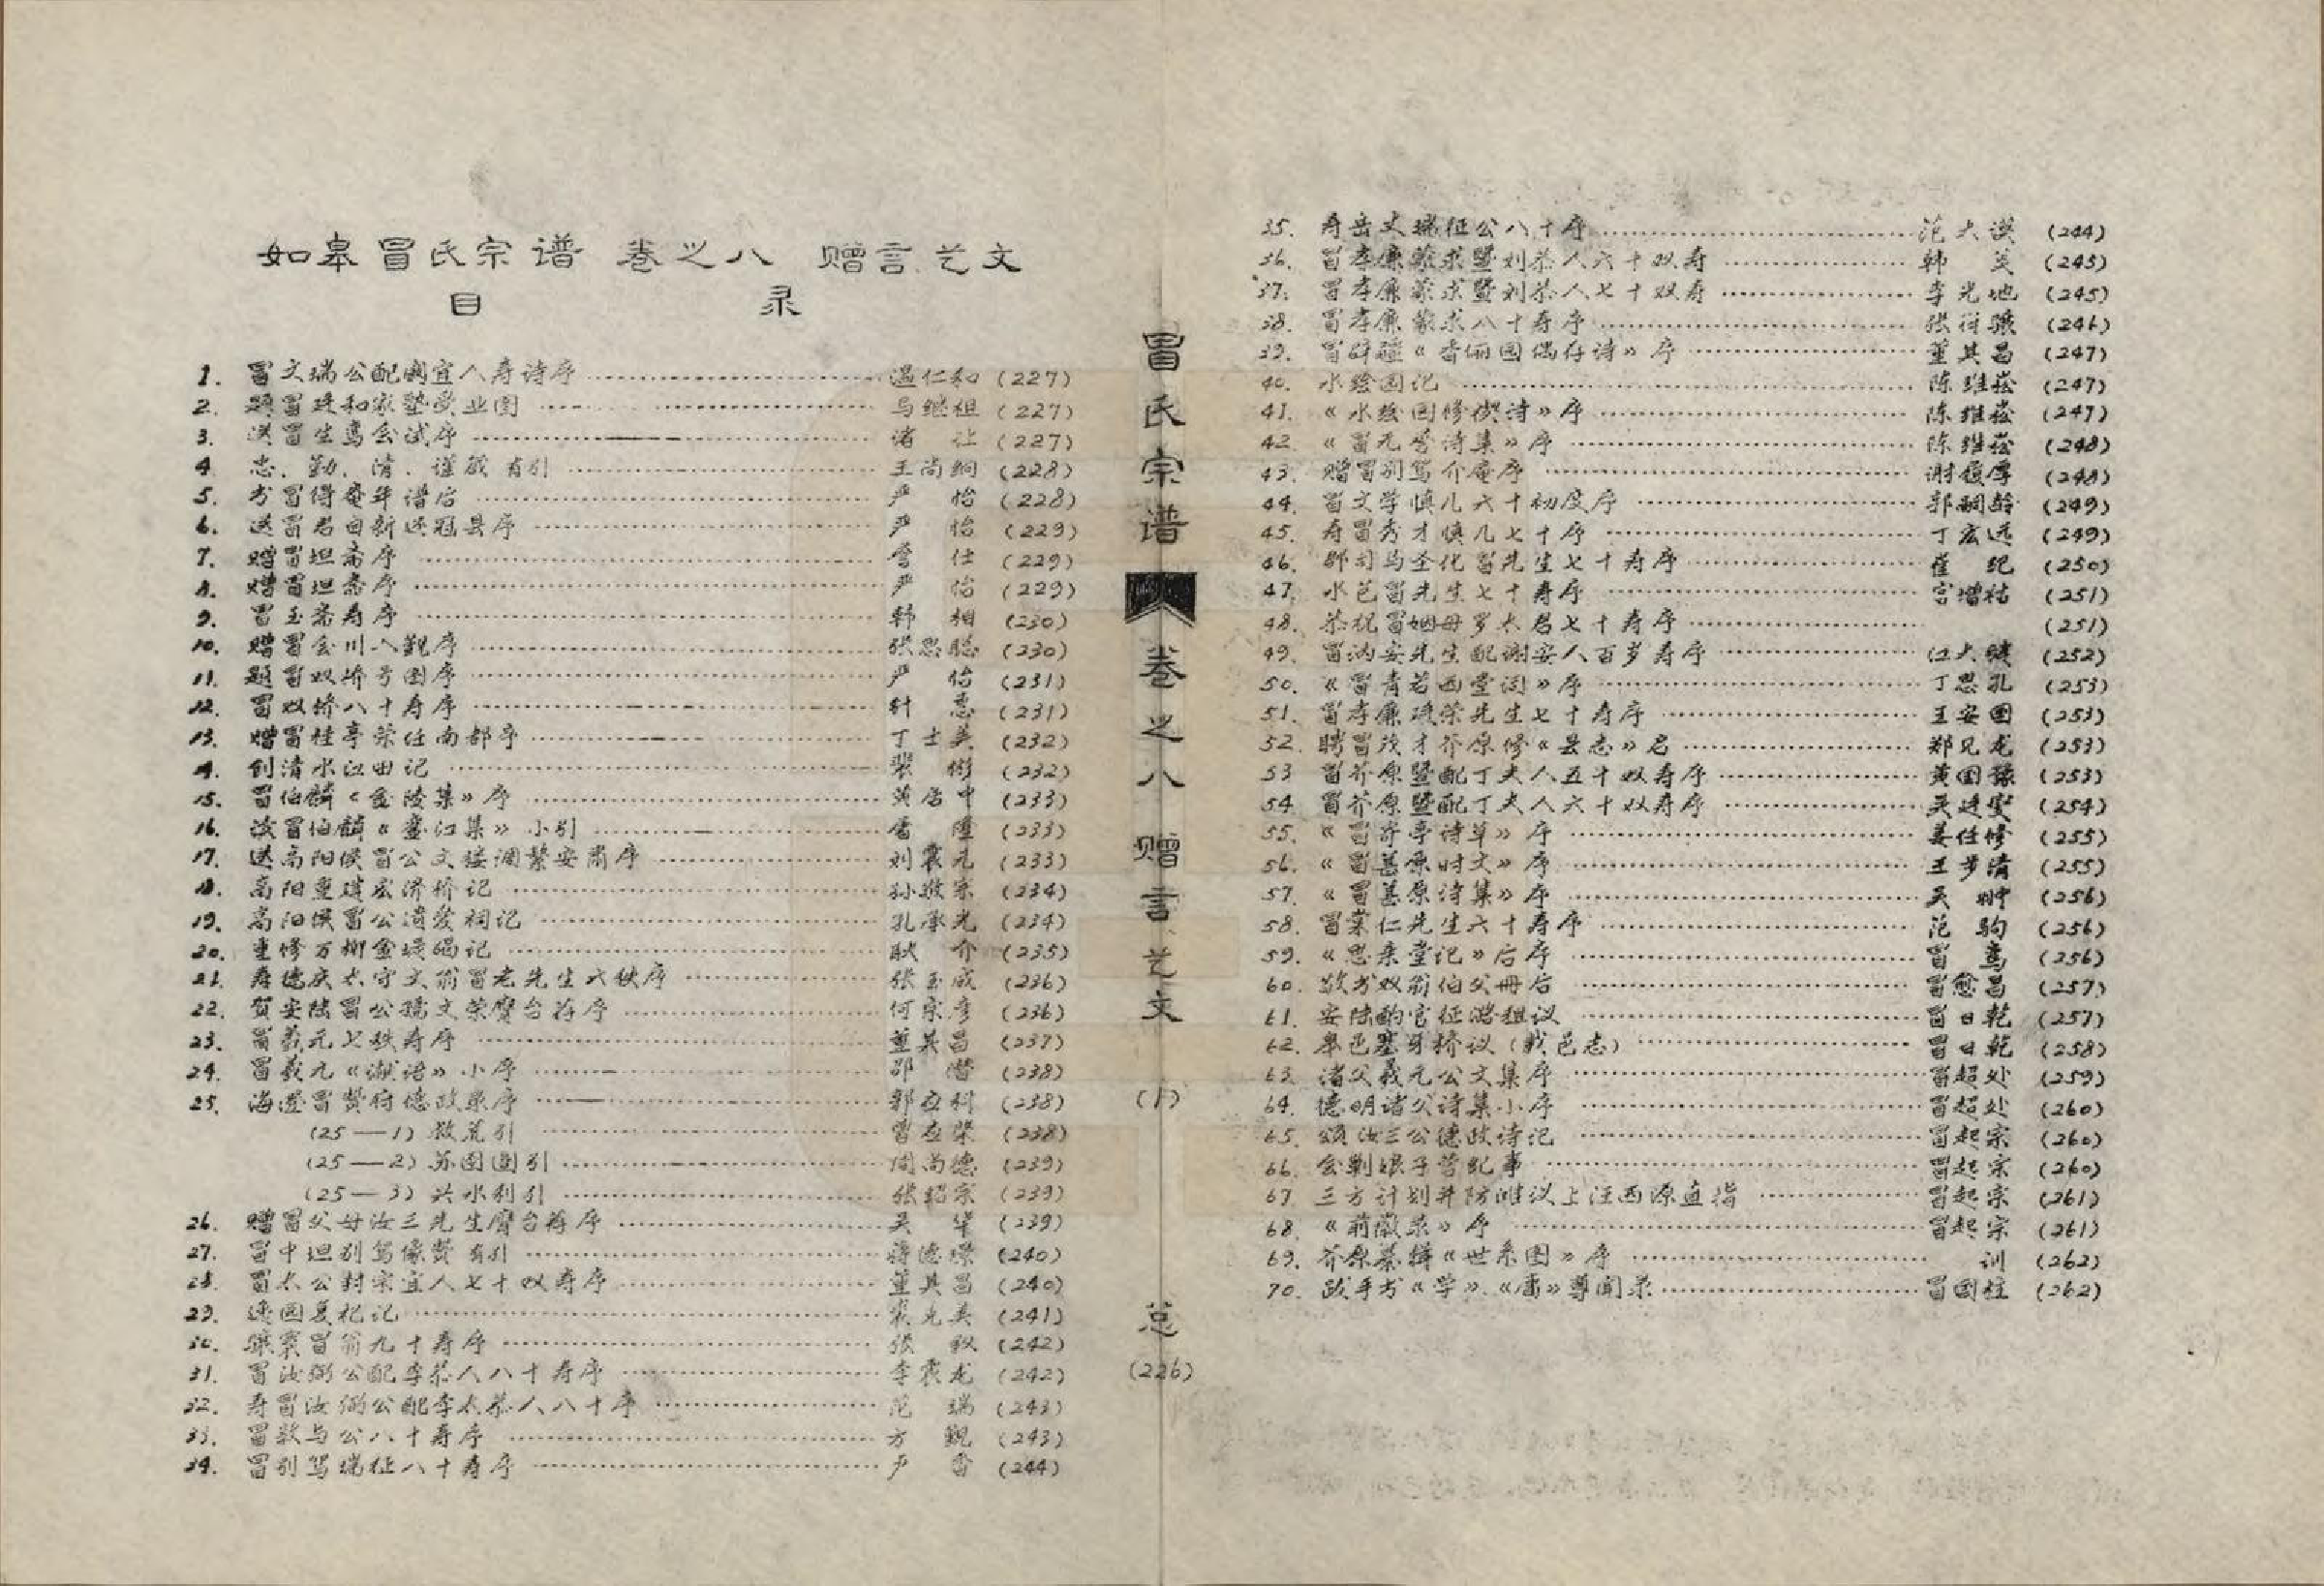 如皋冒氏宗谱 卷之八 赠言、艺文
目 录
1. 冒文瑞公配阚宜人寿诗序 温仁和 (227)
2. 题冒廷和家塾受业图 马继祖 (227)
3. 送冒生鸾会试序 诸 让 (227)
4. 忠、勤、清、谨箴 有引 王尚絅 (228)
5. 书冒得庵年谱后 严 怡 (228)
6. 送冒君自新还冠县序 严 怡 (229)
7. 赠冒坦斋序 仕 (229)
8. 赠冒坦斋序 严 怡 (229)
9. 冒玉斋寿序 韩 相 (230)
10. 赠冒会川入觐序 张思聪 (230)
11. 题冒双桥号图序 严 怡 (231)
12. 冒双桥八十寿序 针 惠 (231)
13. 赠冒桂亭荣任南都序 丁士美 (232)
14. 创清水江田记 裴 (232)
15. 冒伯麟《金陵集》序 黄居中 (233)
16. 冒伯麟《蹇江集》小引 屠 隆 (233)
17. 送高阳侯冒公文接调繁安肃序 刘震元 (233)
18. 高阳重建宏济桥记 孙敬宗 (234)
19. 高阳侯冒公遗爱祠记 孔承先 (234)
20. 重修万柳金堤碣记 耿 介 (235)
21. 寿德庆太守文翁冒老先生六秩序 张玉成 (236)
22. 贺安陆冒公孺文荣膺台荐序 何宗彦 (236)
23. 冒羲元七秩寿序 董其昌 (237)
24. 冒羲元《语》小序 邵 潜 (238)
25. 海澄冒赞府德政录序 郭应科 (238)
(25—1) 救荒引 冒应 (238)
(25—2) 苏图圄引 周尚德 (239)
(25—3) 兴水利引 张绍宗 (239)
26. 赠冒父母汝三先生膺台荐序 吴 (239)
27. 冒中坦别驾像赞 有引 蒋德璟 (240)
28. 冒太公封宗宜人七十双寿序 董其昌 (240)
29. 逸园复杞记 裘允美 (241)
30. 冒翁九十寿序 张 (242)
31. 冒汝弼公配李恭人八十寿序 李震龙 (242)
32. 寿冒汝弼公配李太恭人八十序 范 瑞 (243)
33. 冒敦与公八十寿序 方 觐 (243)
34. 冒别驾瑞征八十寿序 严 (244)
冒氏宗谱
卷之八
赠言、艺文
(1)
总
(226)
35. 寿岳丈瑞征公八十序 范大 (244)
36. 冒孝廉蒙求暨刘恭人六十双寿 韩 菼 (245)
37. 冒孝廉蒙求暨刘恭人七十双寿 李光地 (245)
38. 冒孝廉蒙求八十寿序 张符骧 (246)
39. 冒辟疆《香俪园偶存诗》序 董其昌 (247)
40. 水绘园记 陈维崧 (247)
41. 《水绘园修禊诗》序 陈维崧 (247)
42. 《冒无誉诗集》序 陈维崧 (248)
43. 赠冒别驾介庵序 谢履厚 (248)
44. 冒文学慎几六十初度序 郭嗣龄 (249)
45. 寿冒秀才慎几七十序 丁宏远 (249)
46. 郡司马圣化冒先生七十寿序 崔 纪 (250)
47. 水邑冒先生七十寿序 宫增祜 (251)
48. 恭祝冒姻母罗太君七十寿序 (251)
49. 冒沩安先生配谢安人百岁寿序 江大键 (252)
50. 《冒青若西堂词》序 丁思孔 (253)
51. 冒孝廉砚荣先生七十寿序 王安国 (253)
52. 聘冒茂才芥原修《县志》启 郑见龙 (253)
53 冒芥原暨配丁夫人五十双寿序 黄国豫 (253)
54. 冒芥原暨配丁夫人六十双寿序 吴廷燮 (254)
55. 《冒寄亭诗草》序 姜任修 (255)
56. 《冒葚原时文》序 王步清 (255)
57. 《冒葚原诗集》序 吴 翀 (256)
58. 冒葉仁先生六十寿序 范 驹 (256)
59. 《思亲堂记》后序 冒 鸾 (256)
60. 敬书双翁伯父册后 冒愈昌 (257)
61. 安陆酌官征潞租议 冒日乾 (257)
62. 皋邑塞牙桥议(载邑志) 冒日乾 (258)
63. 渚父羲元公文集序 冒超处 (259)
64. 德明诸父诗集小序 冒超处 (260)
65. 颂汝三公德政诗记 冒起宗 (260)
66. 会剿娘子营纪事 冒起宗 (260)
67. 三方计划并防睢议上汪西源直指 冒起宗 (261)
68. 《前徽录》序 冒起宗 (261)
69. 芥原纂辑《世系图》序 训 (262)
70. 跋手书《学》、《庸》尊闻录 冒国柱 (262)